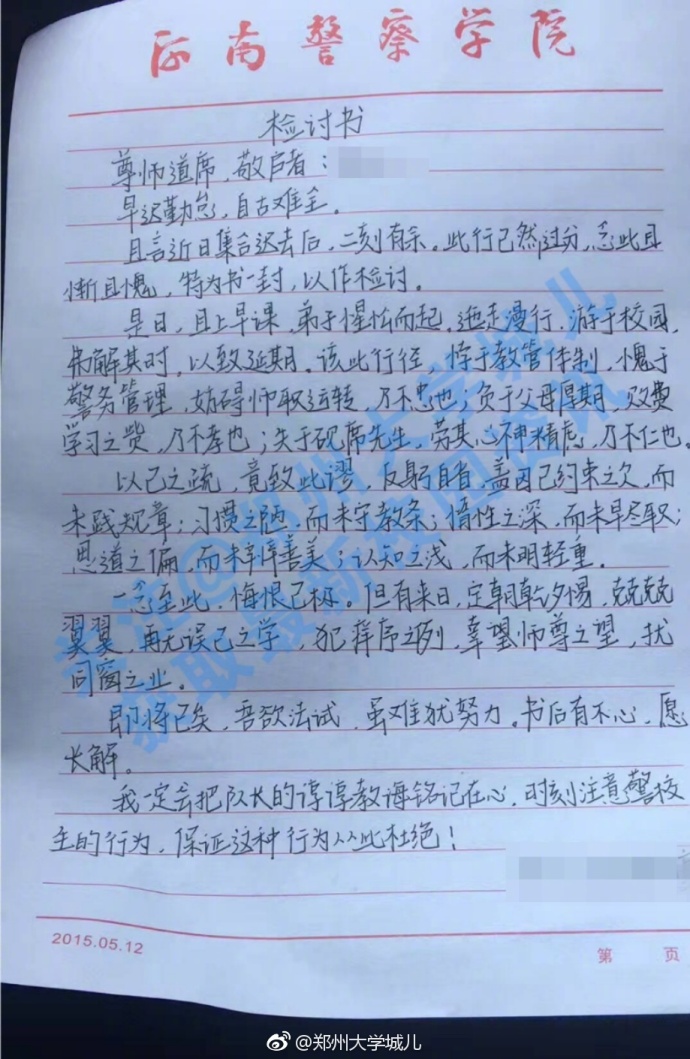 河南警察学院
检讨书
尊师道席，敬启者：
早迟勤怠，自古难全。
且言近日集合迟去后，二刻有余。此行已然过分，念此且
惭且愧，特为书一封，以作检讨。
是日，且上早课，弟子惺忪而起。迤走漫行，游于校园，
弗解其时，以致延期。该此行径，悖于教管体制，愧于
警务管理，妨碍师取运转，乃不忠也；负于父母厚期，败费
学习之赀，乃不孝也；失于砚席先生，劳其心神精虑，乃不仁也。
以己之疏，竟致此谬，反躬自省，盖因己约束之欠，而
未践规章；习惯之陋，而未守教条；惰性之深，而未早尽取；
思道之偏，而未辛悻善美；认知之浅，而未明轻重。
一念至此，悔恨已极。但有来日，定朝乾夕惕，兢兢
翼翼，再无误己之学，犯庠序之列，辜望师尊之望，扰
同窗之业。
即将已矣，吾欲法试，虽难犹努力。书后有不心，愿
长解。
我一定会把队长的谆谆教诲铭记在心，时刻注意警校
生的行为，保证这种行为从此杜绝！
2015.05.12
第 页
关注@郑州大学城儿
获取最新校园资讯
@郑州大学城儿